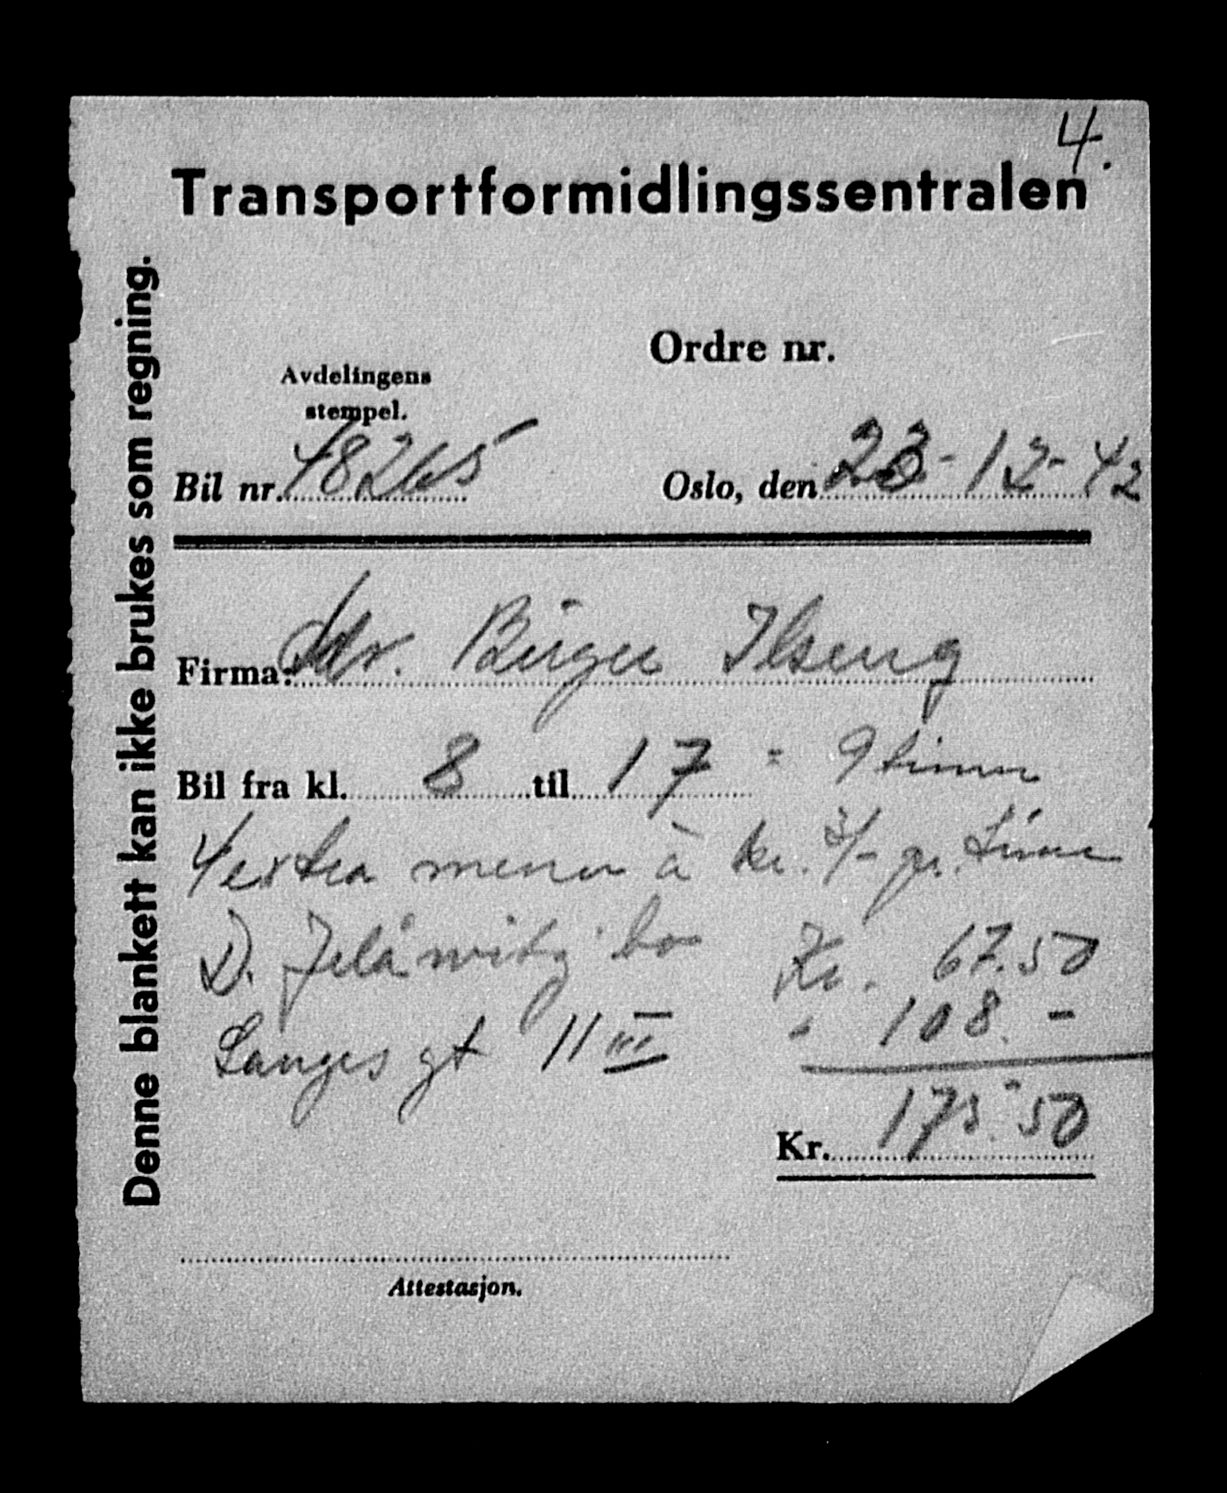 4.
Transportformidlingssentralen
Denne blankett kan ikke brukes som regning.
Ordre nr.
Avdelingens
stempel.
Bil nr. 48265
Oslo, den 23-12-42
Firma: Hr. Birger Ilseng
Bil fra kl. 8 til 17 = 9 timer
4 extra menn à kr. 3/- pr. time
D. bo Kr. 67.50
Langes gt 11 III " 108.-
Kr. 175.50
Attestasjon.